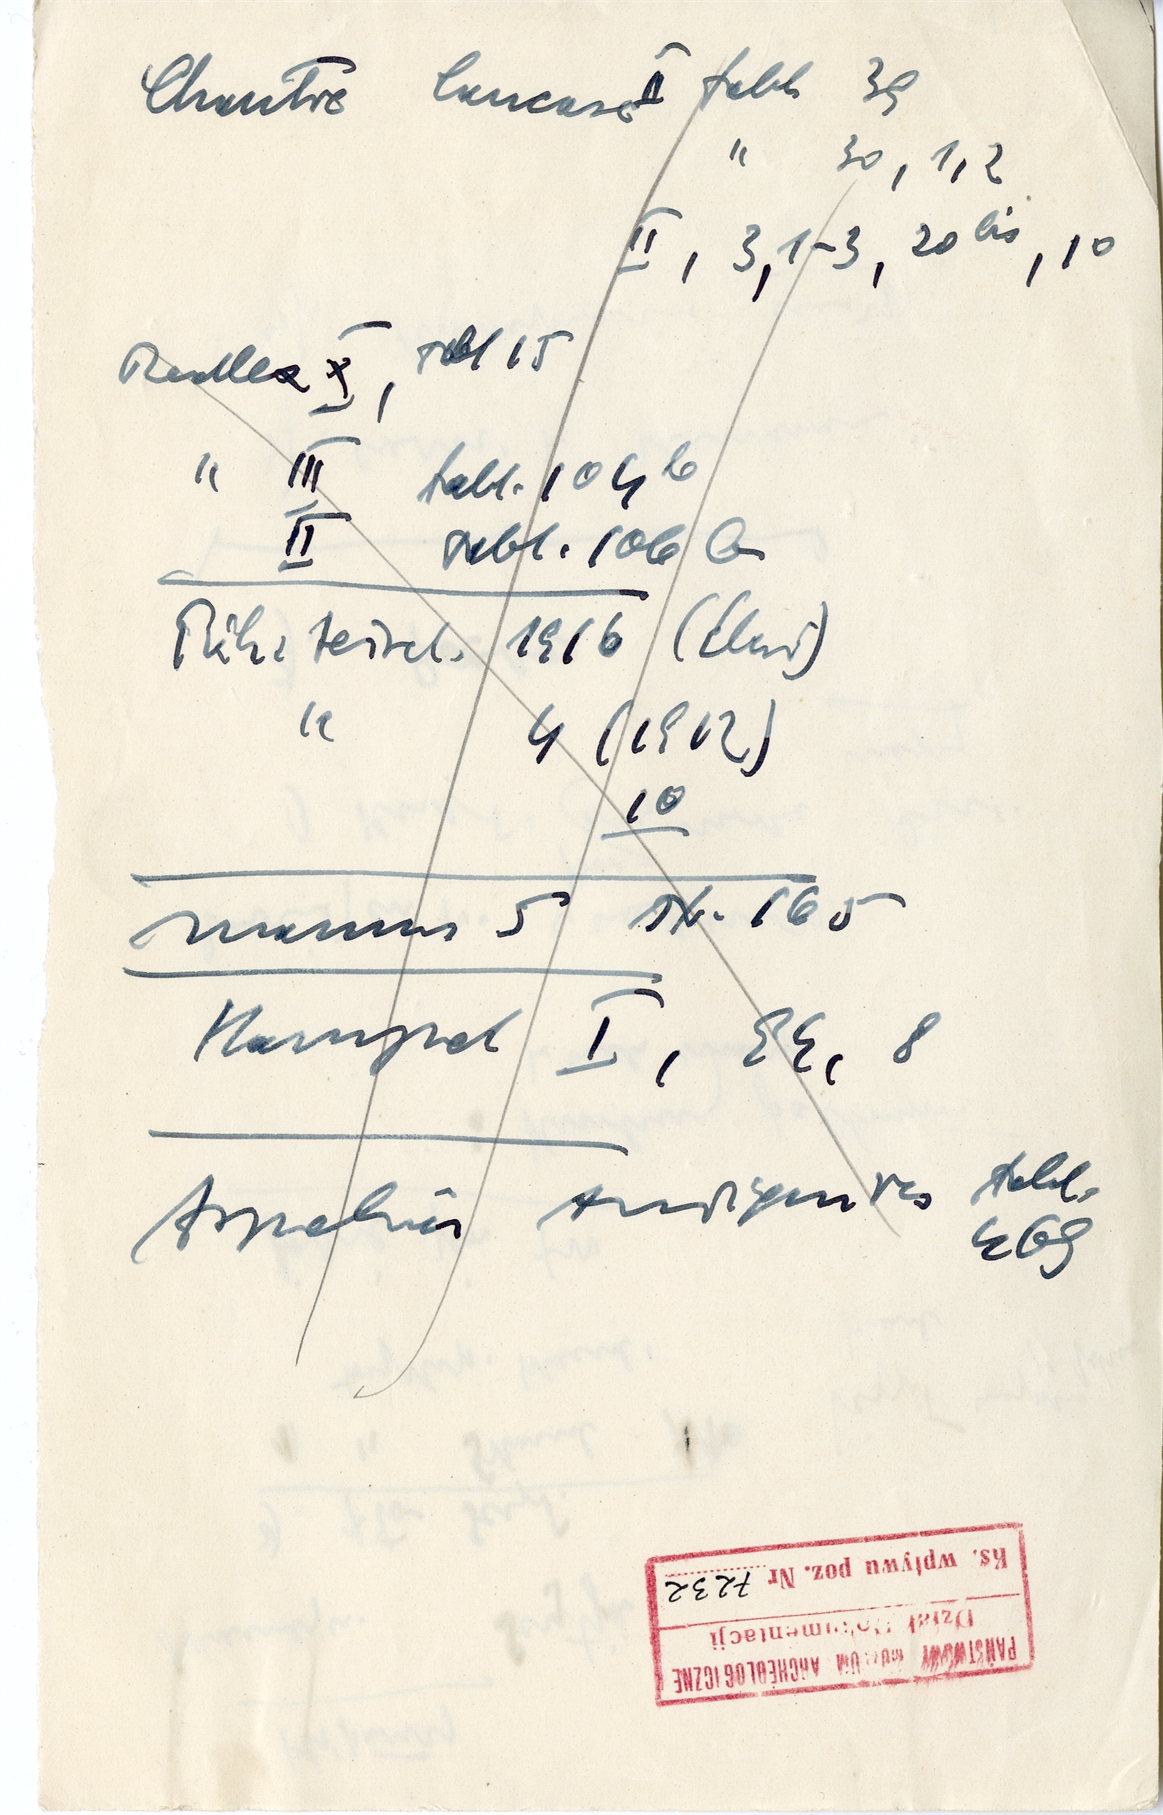 Chantre Caucase II tabl. 39
" 30, 1, 2
II, 3, 1-3, 20 bis, 10
X, tabl 15
" III tabl. 104 b
II tabl. 106
Präh. Zeitsch. 1916
" 4 (1912)
10
Mannus 5 str. 165
Hampel I, 34, 8
Aspelin Antiquités tabl.
469
PAŃSTWOWE MUZEUM ARCHEOLOGICZNE
Dział Dokumentacji
Ks. wpływu poz. Nr 7232